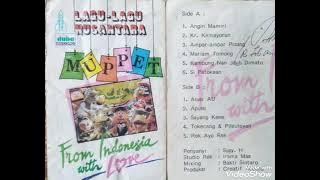 LAGU-LAGU
NUSANTARA
MUPPET
From Indonesia
with Love
Side A :
1. Angin Mamiri
2. Kr. Kemayoran
3. Ampar-ampar Pisang
4. Mariam Tomong
5. Kampung Nan Jauh Dimato
6. Si Patokaan
Side B :
1. Anak AU
2. Apuse
3. Sayang Kene
4. Tokecang & Pileuleuyan
5. Rek Ayo Rek
From
with
Penyanyi : Susy. H
Studio Rek : Irama Mas
Mixing : Bakti Sintaro
Produksi : Creatif
Made with
VideoShow